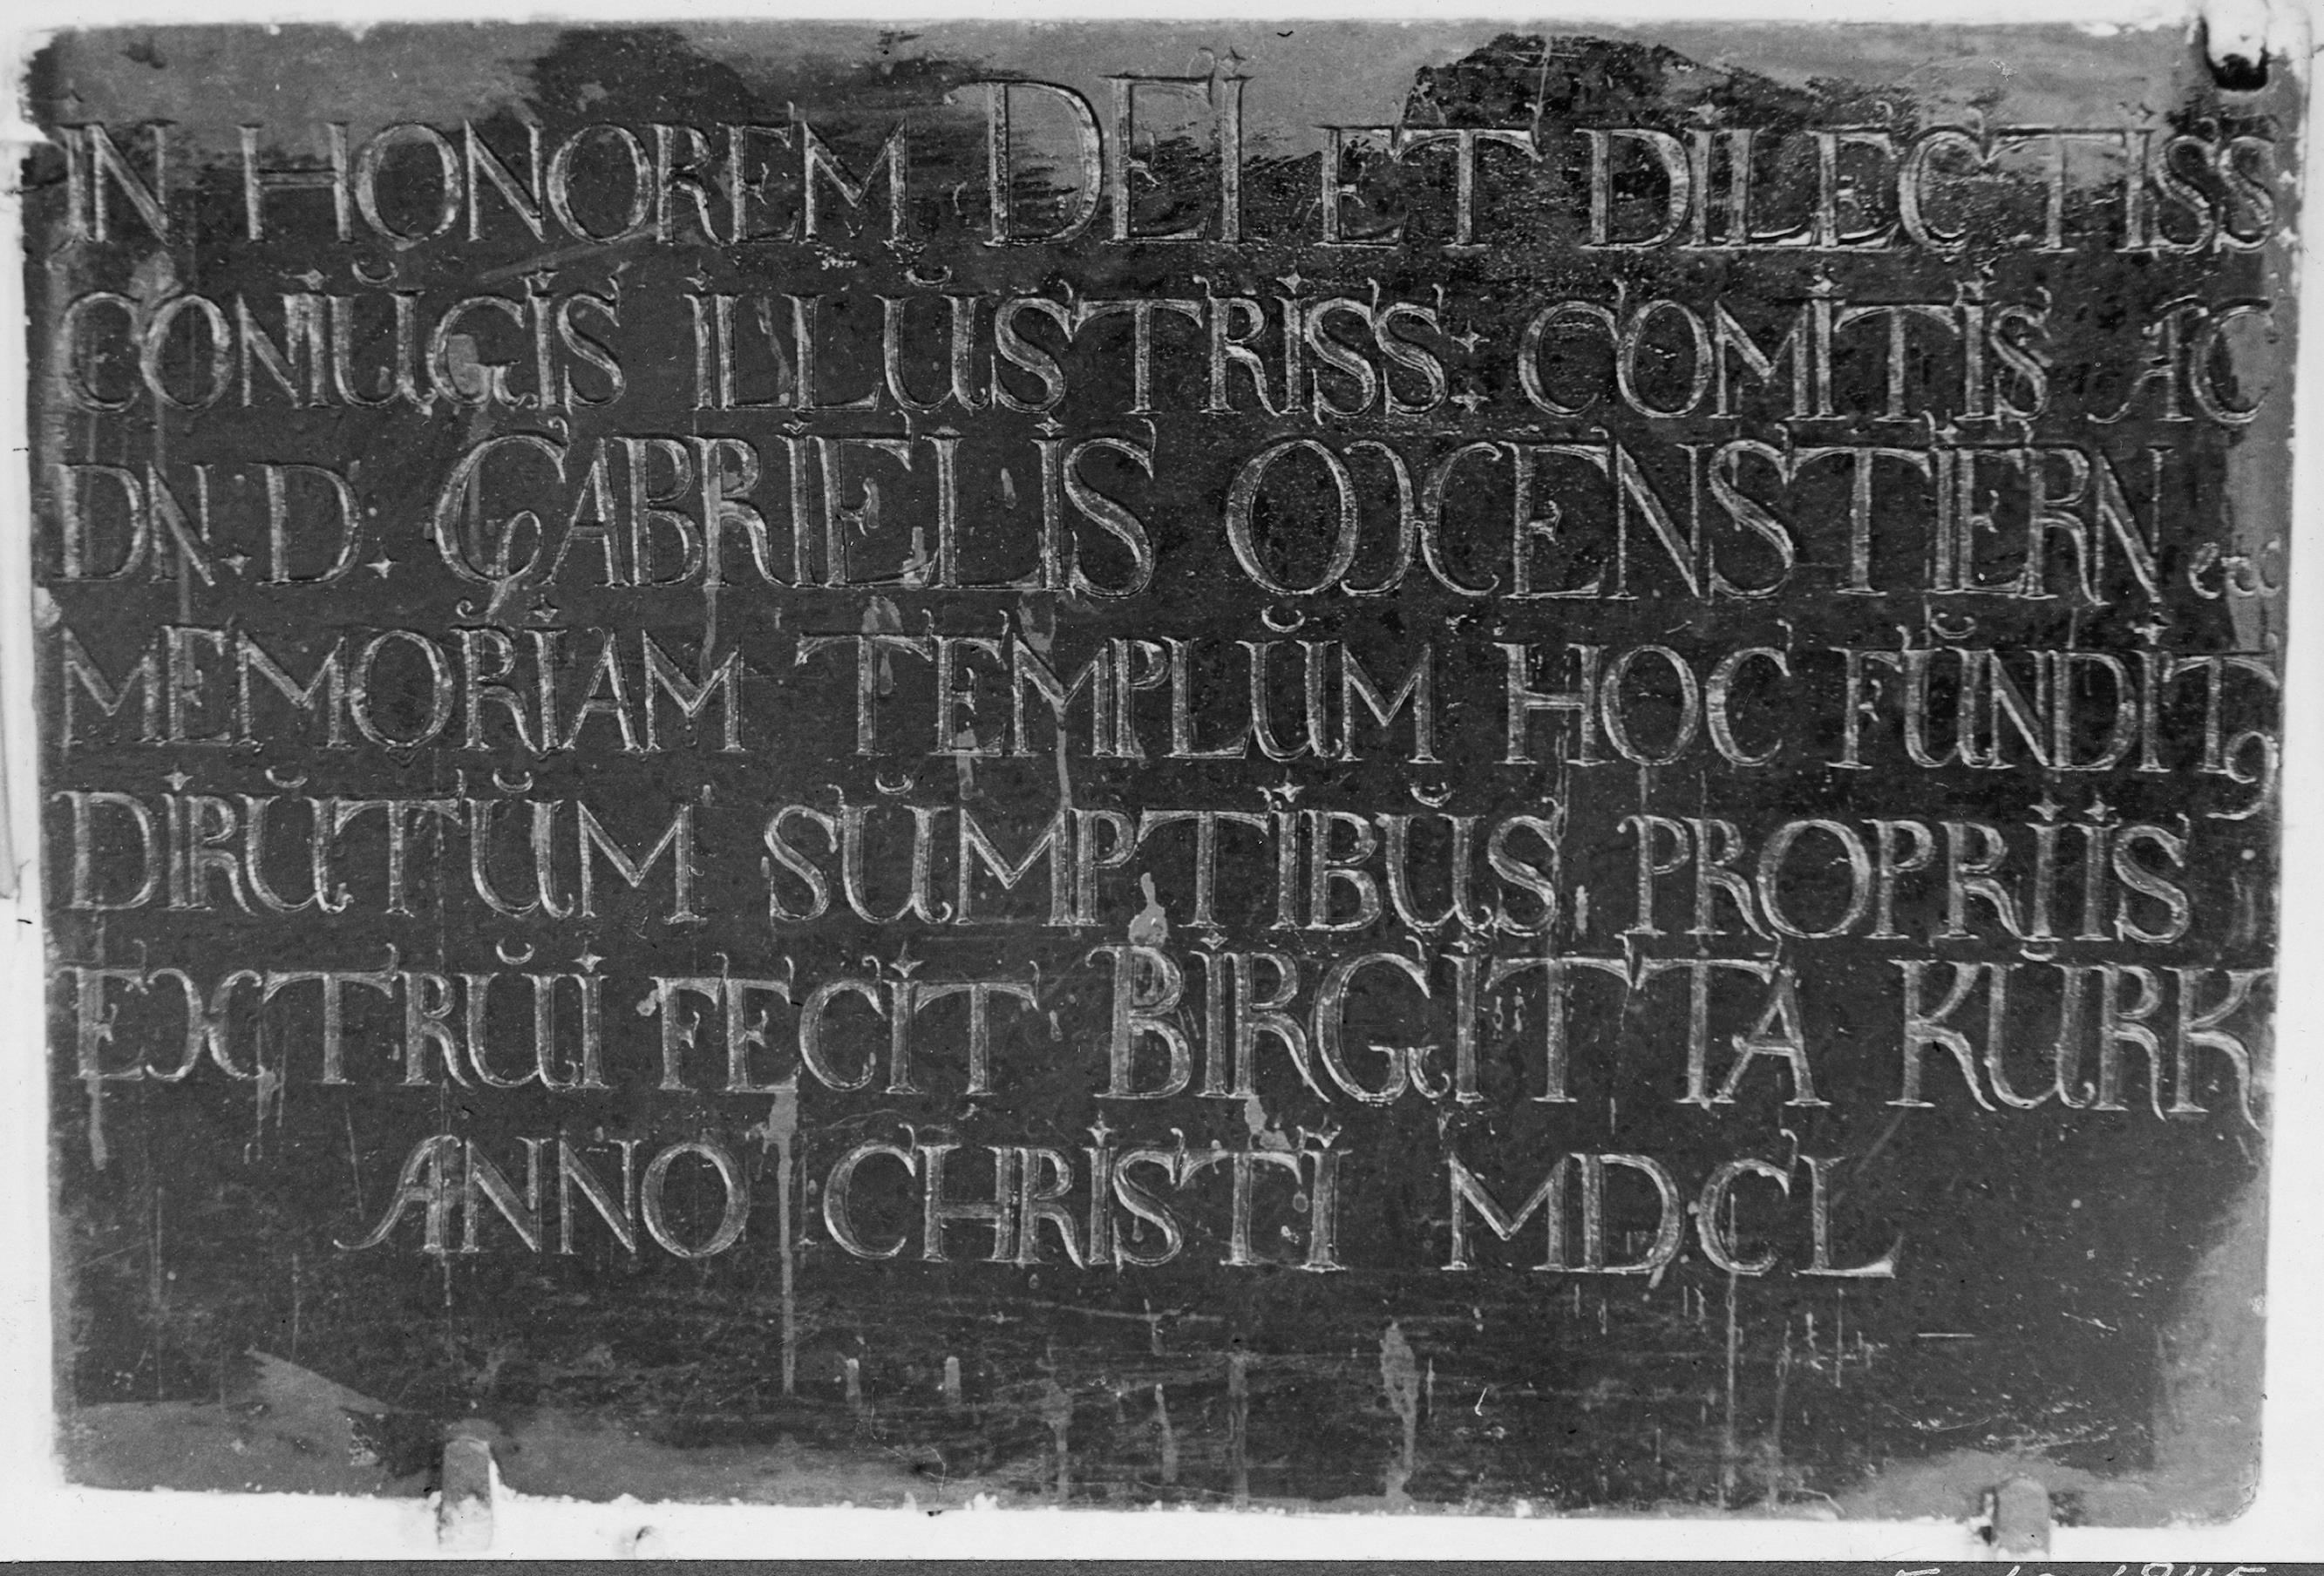 IN HONOREM DEI ET DILECTISS
CONIŬGIS ILLŬSTRISS: COMITIS AC
DN. D. GABRIELIS OXENSTIERN etc
MEMORIAM TEMPLŬM HOC FŬNDITꝰ
DIRŬTŬM SŬMPTIBŬS PROPRIIS
EXTRŬI FECIT BIRGITTA KŬRK
ANNO CHRISTI MDCL